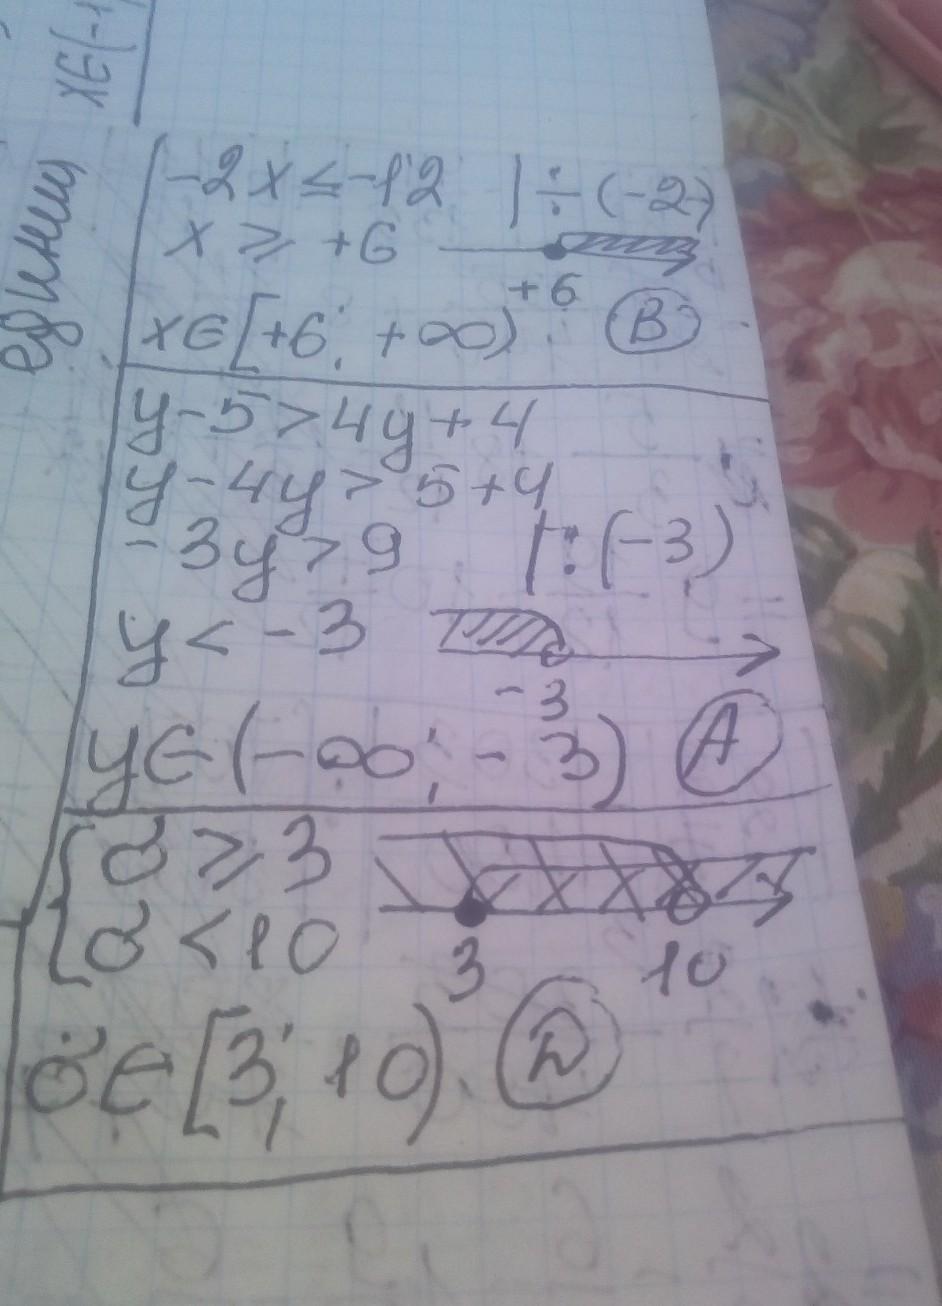 x∈(-1
едини
-2x ≤ -12 | ÷ (-2)
x ≥ +6
+6
x∈[+6; +∞) В
y-5>4y+4
y-4y> 5+4
-3y>9 |:(-3)
y< -3
-3
y∈(-∞; -3) А
{ a ≥ 3
a <10
3 10
a∈[3; 10). Д